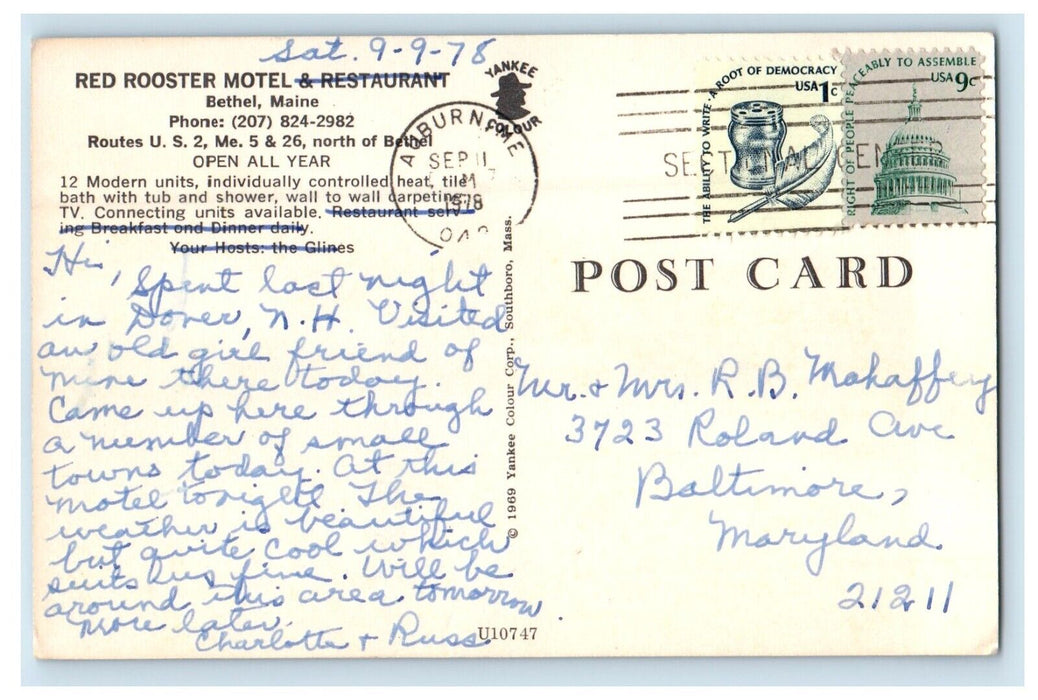 Sat. 9-9-78
RED ROOSTER MOTEL & RESTAURANT
Bethel, Maine
Phone: (207) 824-2982
Routes U. S. 2, Me. 5 & 26, north of Bethel
OPEN ALL YEAR
12 Modern units, individually controlled heat, tile
bath with tub and shower, wall to wall carpeting,
TV. Connecting units available. Restaurant serv-
ing Breakfast ond Dinner daily.
Your Hosts: the Glines
Hi,
Spent last night
in Dover, N.H. Visited
an old girl friend of
mine there today.
Came up here through
a number of small
towns today. At this
motel tonight The
weather is beautiful
but quite cool which
suits us fine. Will be
around this area tomorrow.
more later.
Charlotte + Russ
YANKEE
COLOUR
AUBURN ME
SEP 11
M
1978
042
© 1969 Yankee Colour Corp., Southboro, Mass.
U10747
THE ABILITY TO WRITE · A ROOT OF DEMOCRACY
USA 1c
RIGHT OF PEOPLE PEACEABLY TO ASSEMBLE
USA 9c
SECTIONAL CEN
POST CARD
Mr. + Mrs. R. B. Mahaffey
3723 Roland Ave
Baltimore,
Maryland.
21211